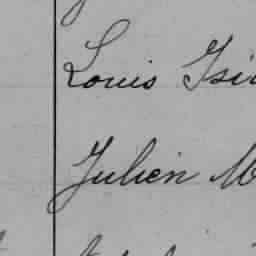 Louis Isi
Julien M